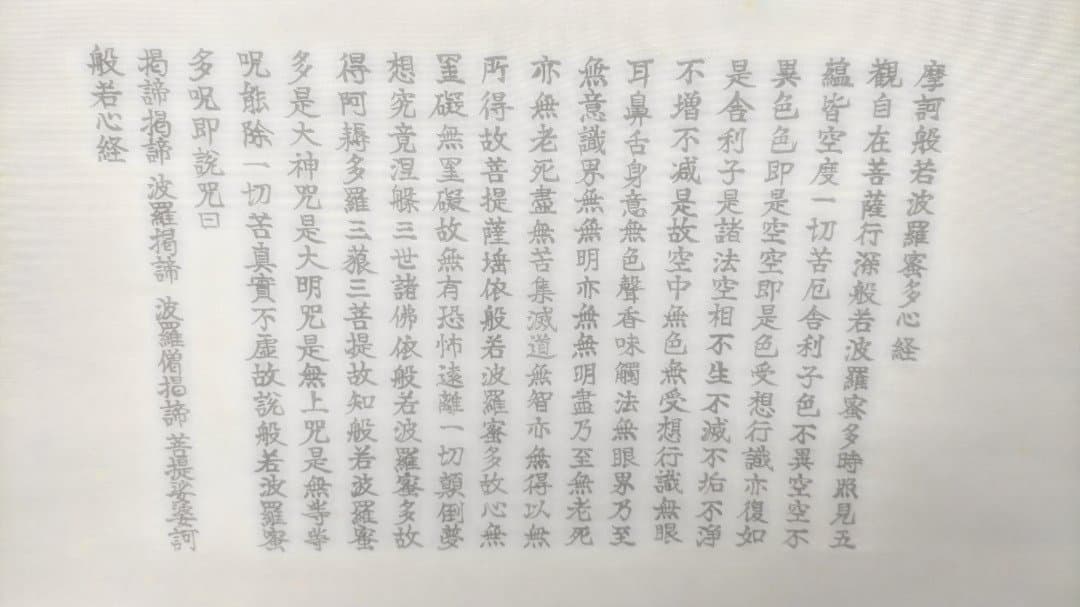 摩訶般若波羅蜜多心経
觀自在菩薩行深般若波羅蜜多時照見五
蘊皆空度一切苦厄舎利子色不異空空不
異色色即是空空即是色受想行識亦復如
是舎利子是諸法空相不生不滅不垢不淨
不增不減是故空中無色無受想行識無眼
耳鼻舌身意無色聲香味觸法無眼界乃至
無意識界無無明亦無無明盡乃至無老死
亦無老死盡無苦集滅道無智亦無得以無
所得故菩提薩埵依般若波羅蜜多故心無
罣礙無罣礙故無有恐怖遠離一切顛倒夢
想究竟涅槃三世諸佛依般若波羅蜜多故
得阿耨多羅三藐三菩提故知般若波羅蜜
多是大神咒是大明咒是無上咒是無等等
呪能除一切苦真實不虛故說般若波羅蜜
多呪即說咒曰
揭諦揭諦 波羅揭諦 波羅僧揭諦 菩提娑婆訶
般若心経